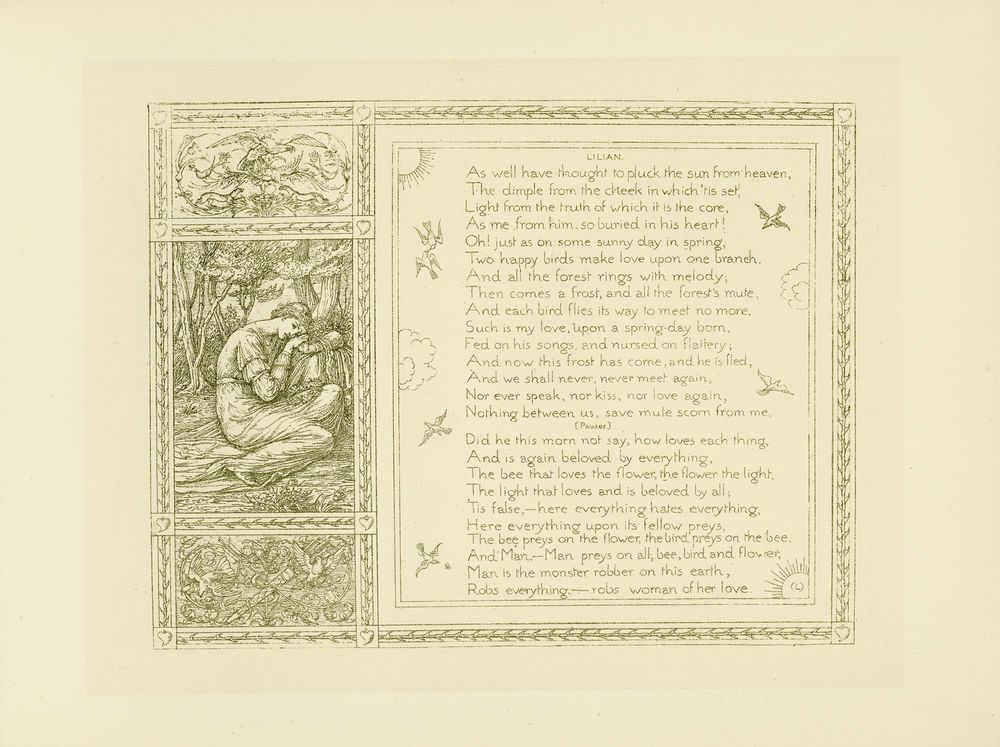 LILIAN.
As well have thought to pluck the sun from heaven,
The dimple from the cheek in which 'tis set,
Light from the truth of which it is the core,
As me from him, so buried in his heart!
Oh! just as on some sunny day in spring,
Two happy birds make love upon one branch,
And all the forest rings with melody;
Then comes a frost, and all the forest's mute,
And each bird flies its way to meet no more.
Such is my love, upon a spring-day born,
Fed on his songs, and nursed on flattery;
And now this frost has come, and he is fled,
And we shall never, never meet again,
Nor ever speak, nor kiss, nor love again,
Nothing between us, save mute scorn from me.
(Pauses.)
Did he this morn not say, how loves each thing,
And is again beloved by everything,
The bee that loves the flower, the flower the light,
The light that loves and is beloved by all;
Tis false,—here everything hates everything,
Here everything upon its fellow preys,
The bee preys on the flower, the bird preys on the bee,
And Man,—Man preys on all, bee, bird and flower,
Man is the monster robber on this earth,
Robs everything,—robs woman of her love.
(4)